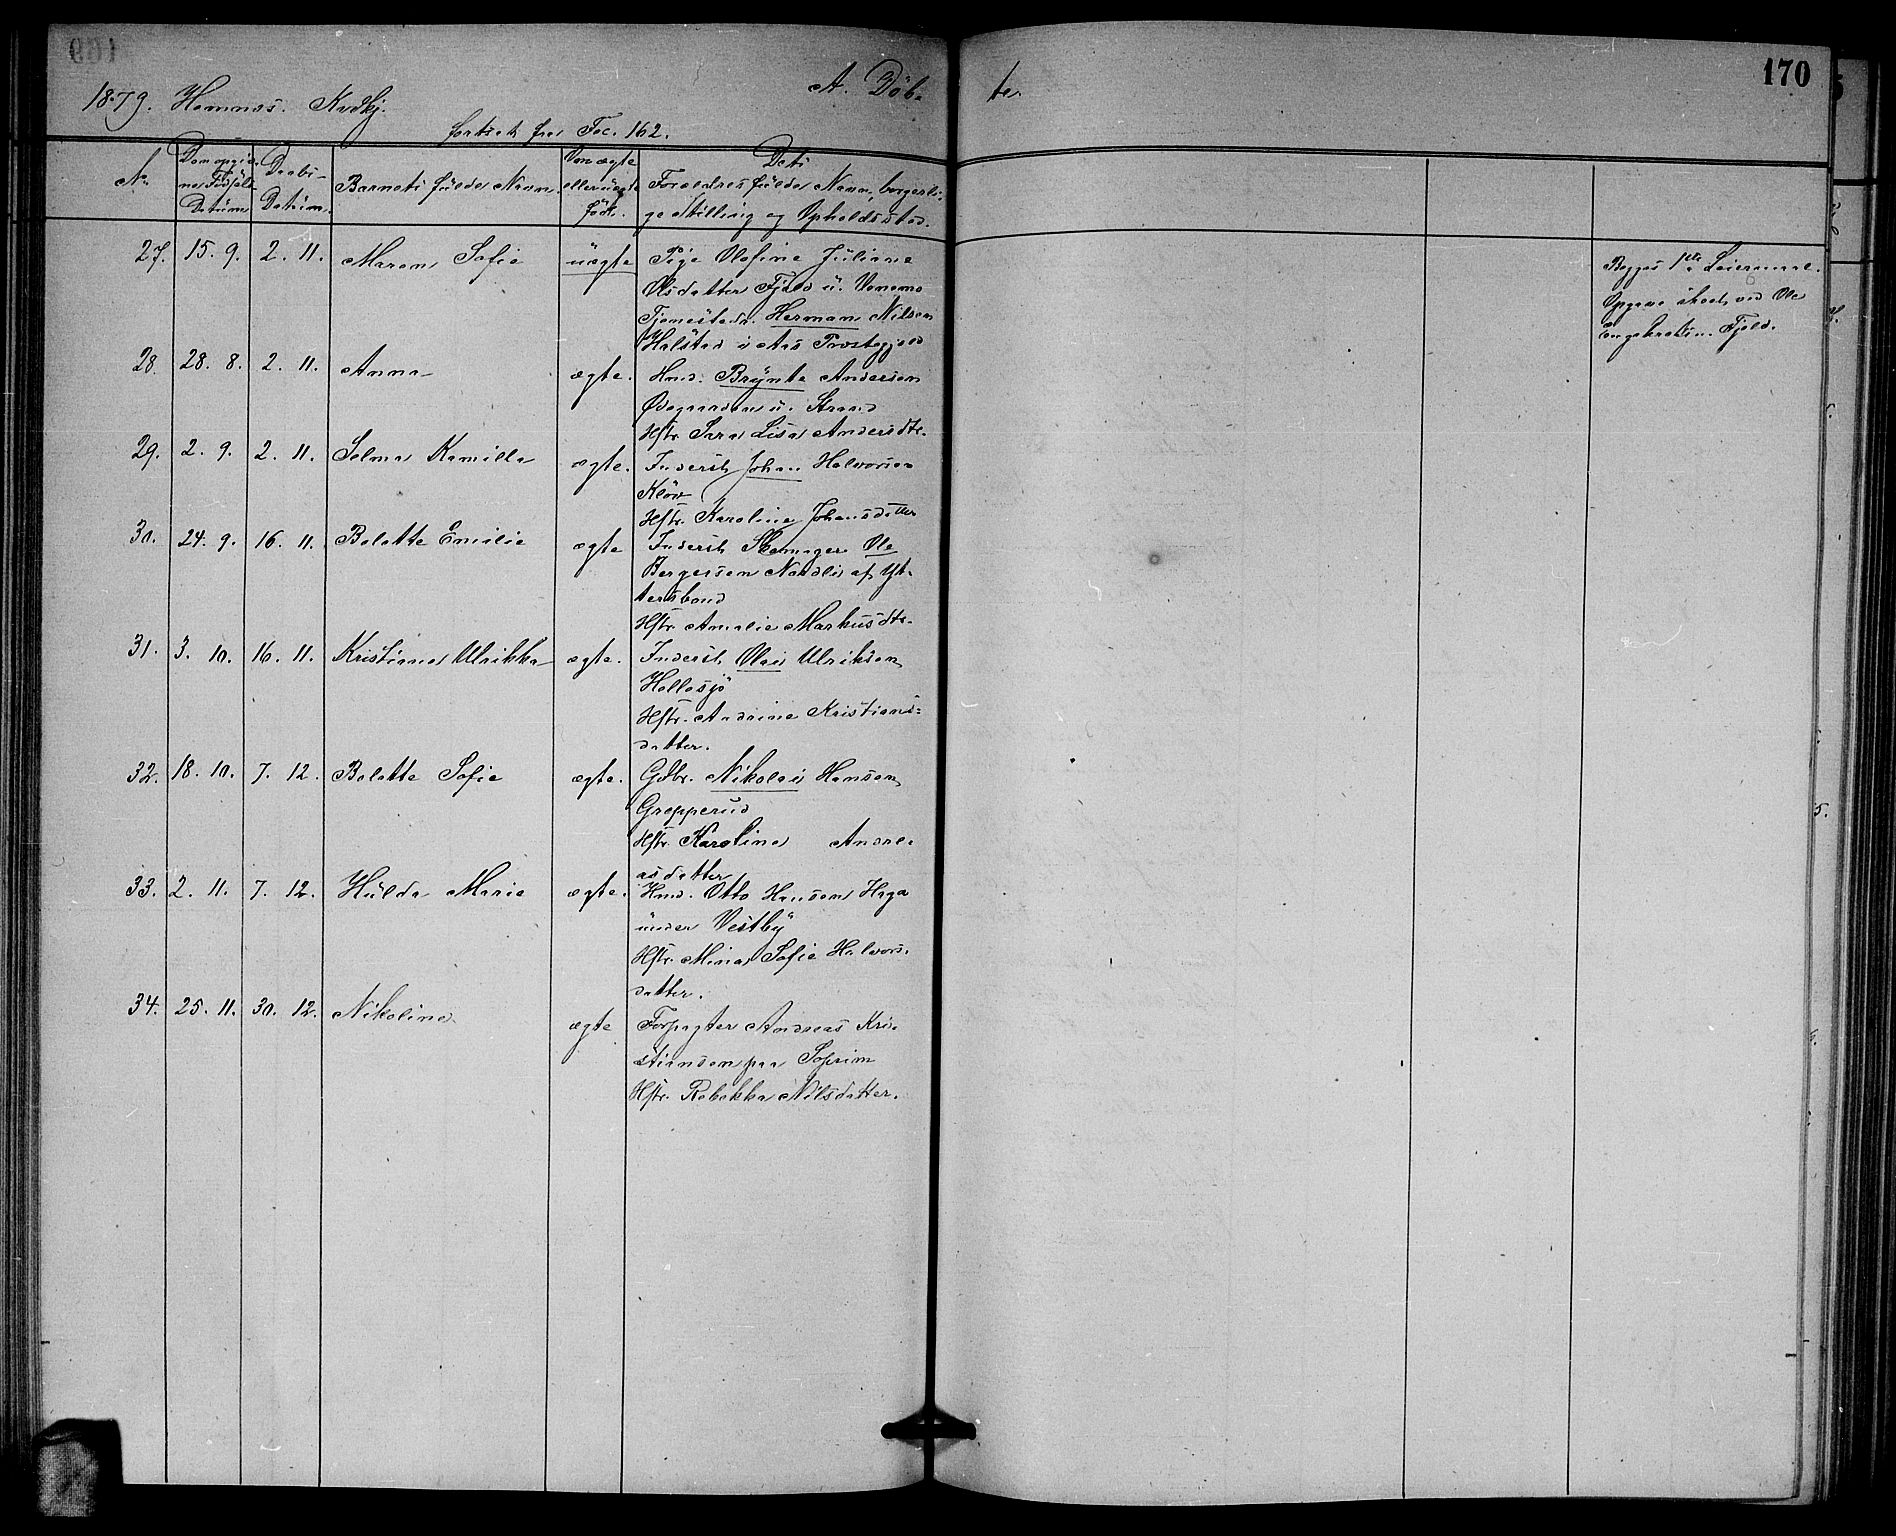 170
1879. Hemnæs. Kvdkj. A. Döb- te.
fortsat fra Foc. 162.
No
Den opgiv-
ne Fødsels-
Datum
Daabs-
Datum.
Barnets fulde Navn.
Om ægte
eller uægte
født.
Dets
Forældres fulde Navn, borgerli-
ge Stilling og Opholdssted.
27. 15. 9. 2. 11. Maren Sofie uægte Pige Olefine Juliane
Olsdatter Fjeld u.
Tjenestedr. Herman Nilsen
Halstad i Aas Præstegjeld
Begges 1ste Leiermaal.
Opgave skeet ved Ole
Engebretsen Fjeld.
28. 28. 8. 2. 11. Anna ægte. Hmd. Brynte Andersen
Ødegaarden u. Strand
Hstr. Sara Lisa Andersdtr.
29. 2. 9. 2. 11. Selma Kamilla ægte. Inderst Johan Halvorsen
Kløv
Hstr. Karoline Johansdatter
30. 24. 9. 16. 11. Belette Emilie ægte Inderst Skomager Ole
Bergersen Nordli af Yt-
tersbond
Hstr. Amalie Markusdtr.
31. 3. 10. 16. 11. Kristiane Ulrikka ægte. Inderst Olai Ulriksen
Hellesjö
Hstr. Andrine Kristians-
datter.
32. 18. 10. 7. 12. Belette Sofie ægte. Gdbr. Nikolai Hansen
Grepperud
Hstr. Karoline Andre-
asdatter
33. 2. 11. 7. 12. Hulda Marie ægte. Hmd. Otto Hansen Haga
under Vestby
Hstr. Mina Sofie Halvors-
datter.
34. 25. 11. 30. 12. Nikoline ægte Forpagter Andreas Kri-
stiansen paa Soprim
Hstr. Rebekka Nilsdatter.